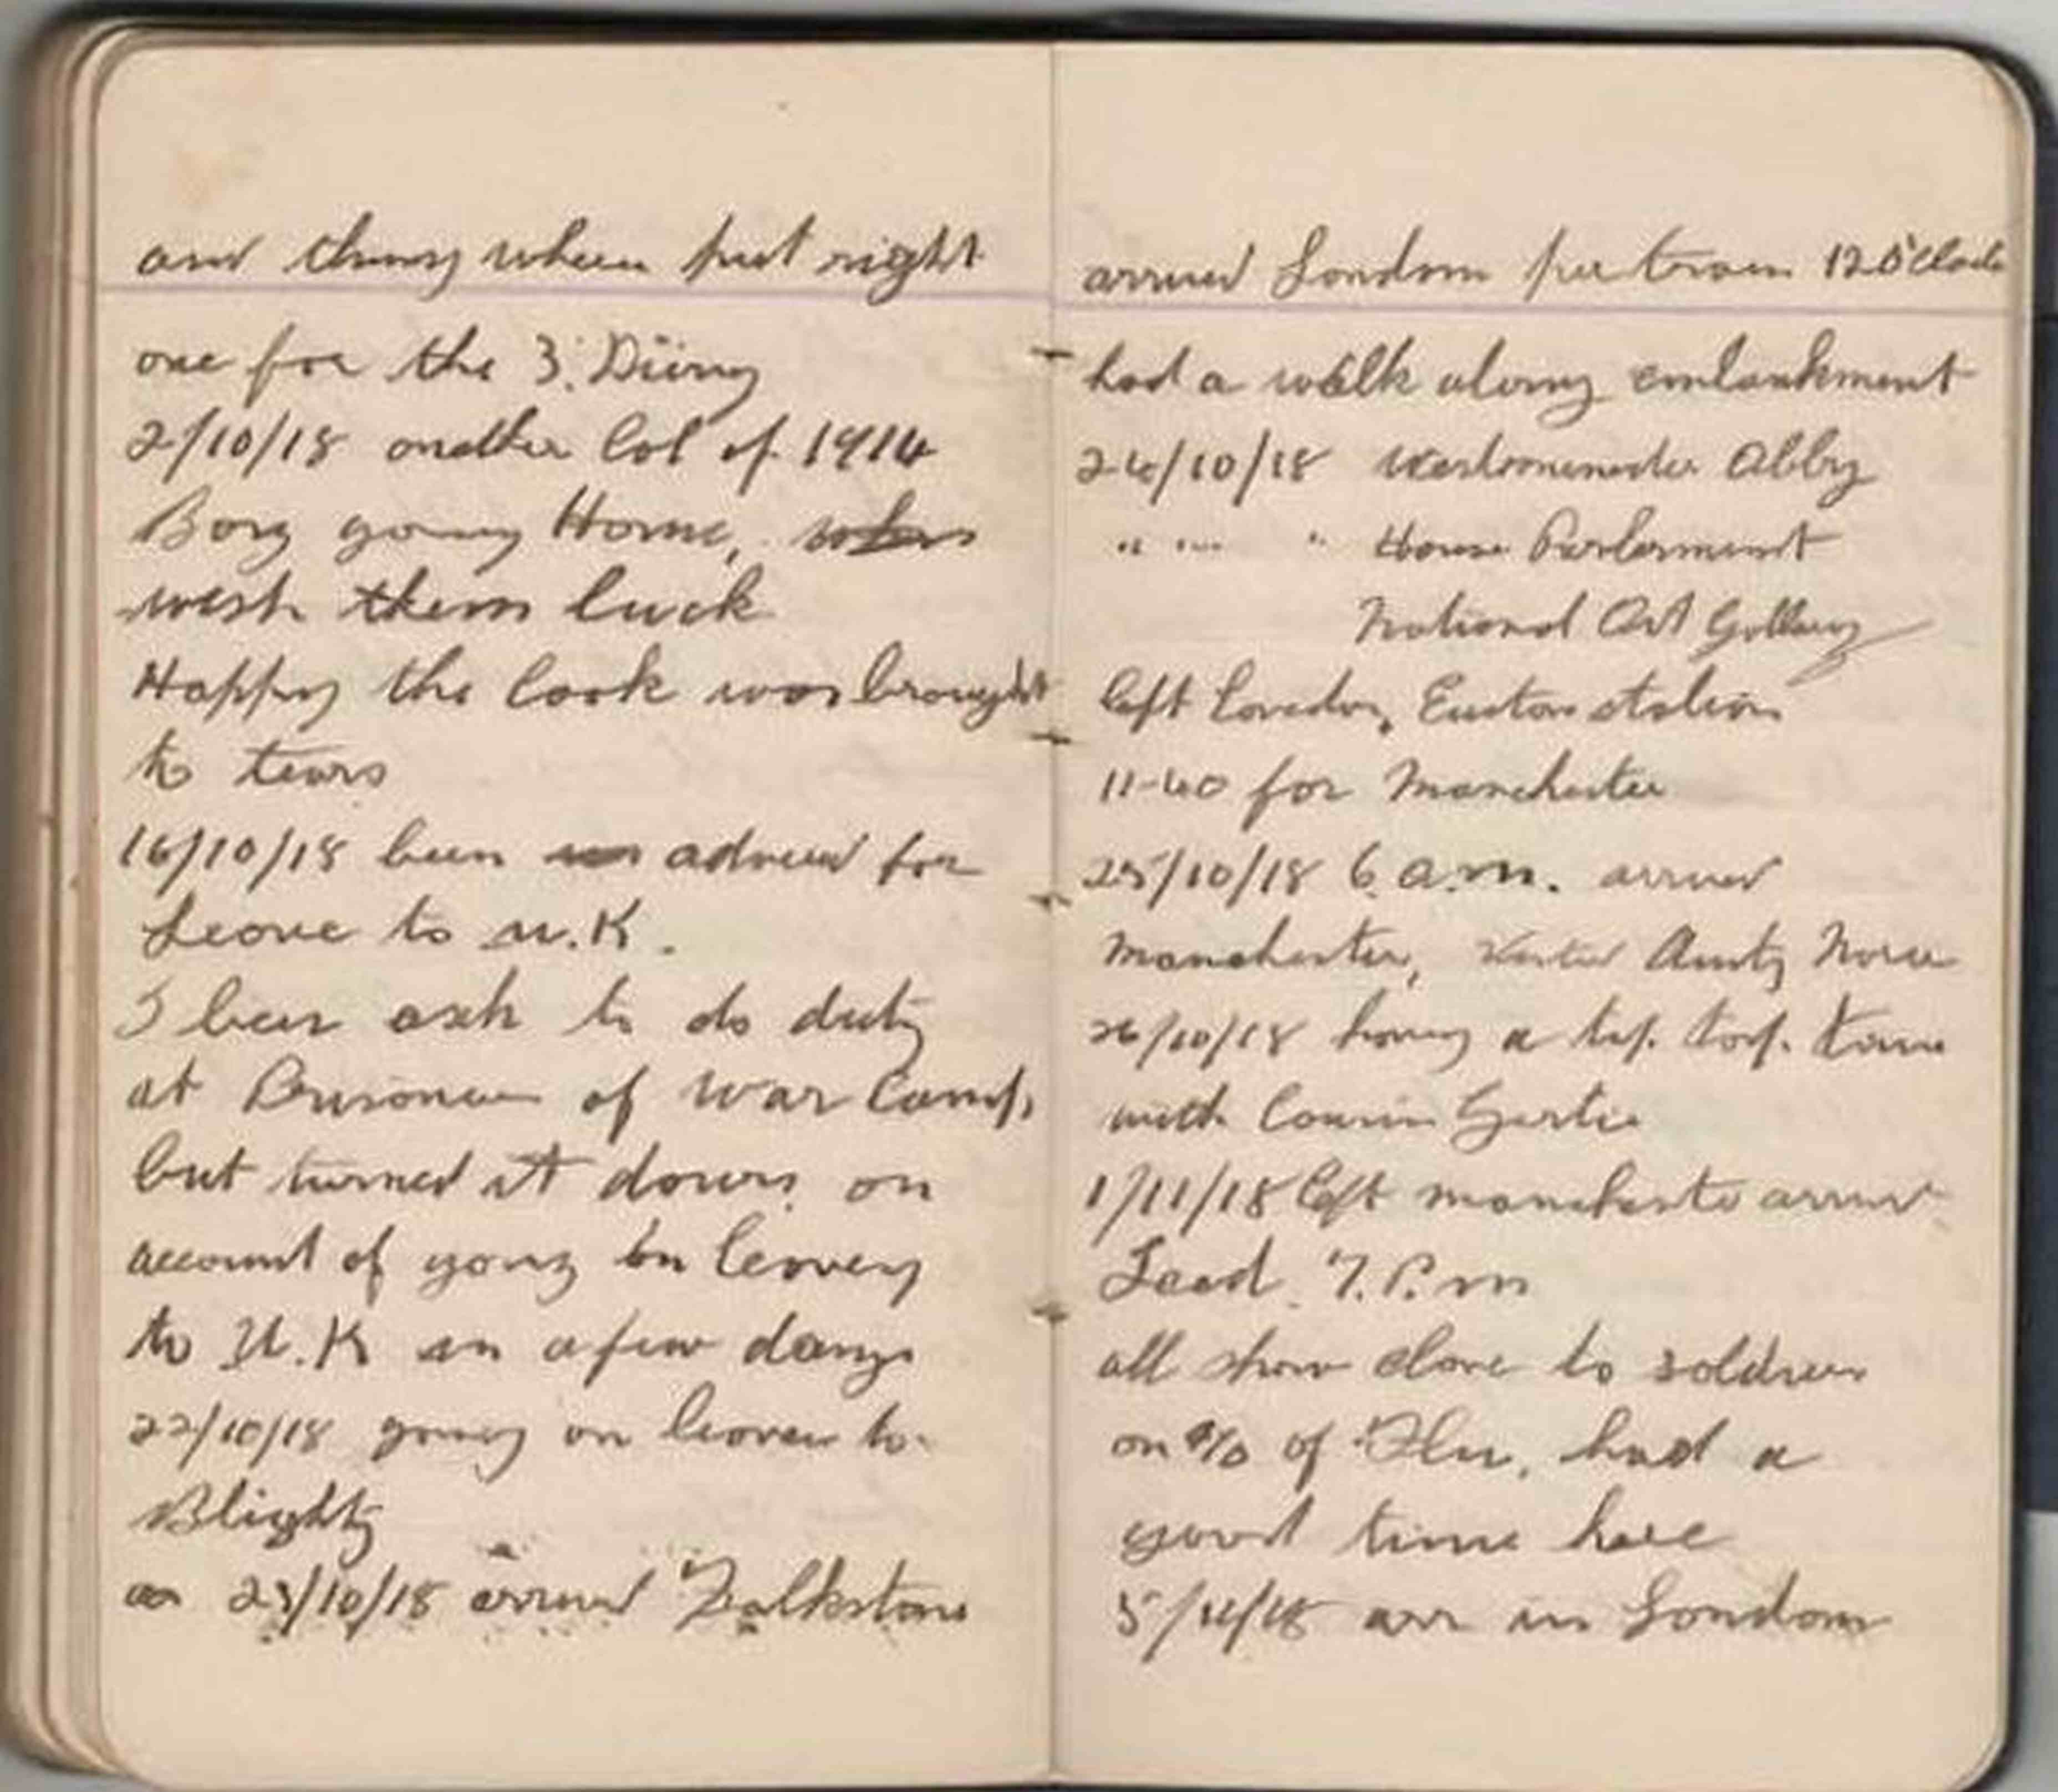 and things where put right
one for the 3. Diiny
2/10/18 another lot of 1914
Boys going Home,
wish them luck
Happy the Cook was brought
to tears
16/10/18 been advised for
Leave to U.K.
I been ask to do duty
at Prisoner of War Camp,
but turned it down on
account of going on leave
to U.K in a few days
22/10/18 going on leave to
Blighty
on 23/10/18 arrived Folkstone
arrived London per train 12 O'Clock
had a walk along embankment
24/10/18 Westmenester Abby
" " " House Parlerment
National Art Gallery
left London, Euston station
11-40 for Manchester
25/10/18 6 a.m. arrived
Manchester, Visited Aunty
26/10/18 having a tip. top. time
with Cousin Gertie
1/11/18 left Manchester arrived
Leed 7.P.m
all show close to soldiers
on a/c of Flu, had a
good time here
5/11/18 arr in London